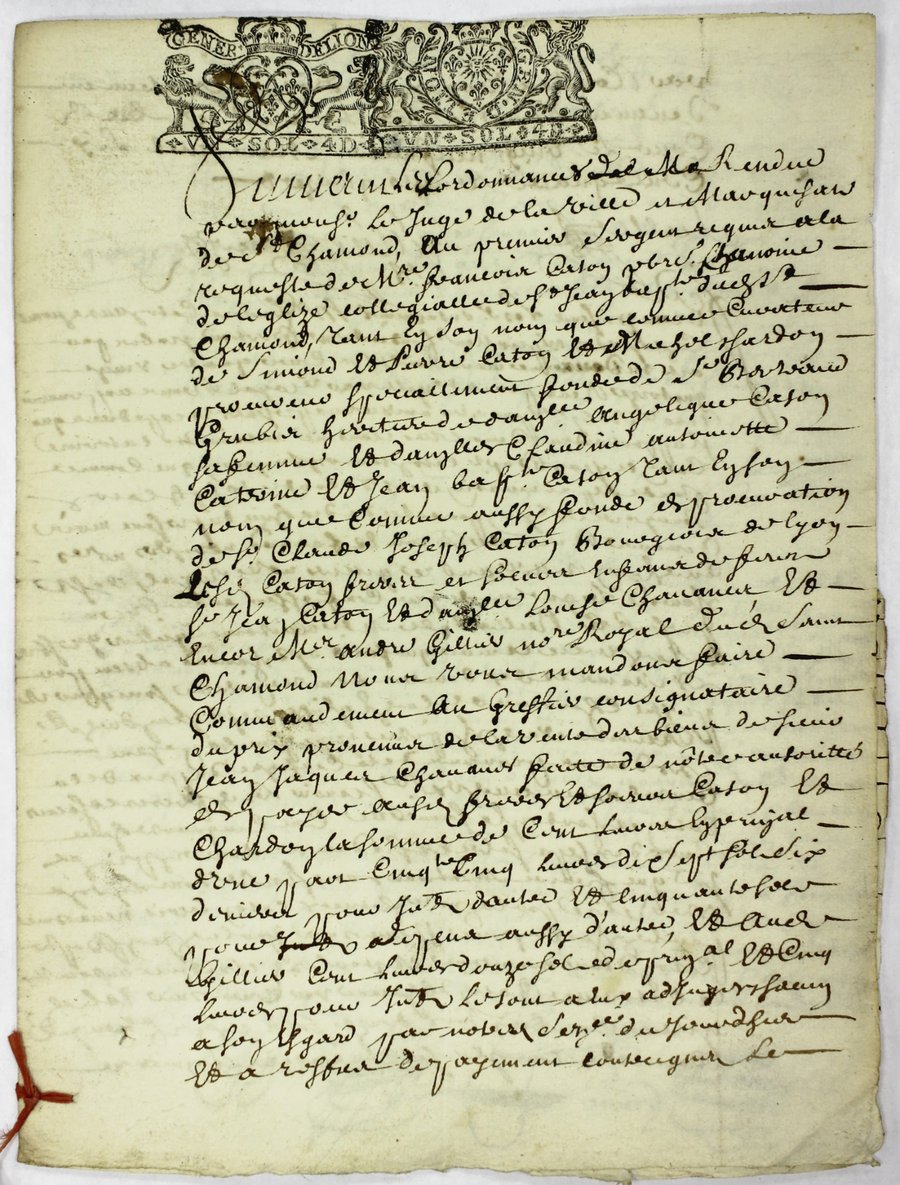 GENER DELION
VN SOL 4D VN SOL 4D
Suivant les ordonnances de Me Rendue
par monsr. Le Juge de la ville et Marquisat
de St Chamond, Au premier Sergent requis a la
requeste de Mre. francois Caton pbre. Chanoine
de leglize collegialle de St Jean bapte dudt St
Chamond, Tant En son nom que comme Curateur
de Simond Et Pierre Caton Et Michel chardon
procureur speciallement fondé de Se
heritiere de danlle angelique Caton
sa femme Et danlles Claudine antoinette
Caterine Et Jean bapte. Caton Tant En son
nom que Comme aussy fondé de procuration
de Sr. Claude Joseph Caton Bourgeois de lyon
Lesd Caton freres et soeurs Enfans de feu
Sr Jean Caton Et danlle Louise Chavanes Et
Encor Mre. andre Gillier nore Royal dud Saint
Chamond Nous vous mandons faire
Commandement Au Greffier consignataire
du prix provenu de la vente des biens de sieur
Jean Jaques Chavanes faitte de nôtre autoritté
de payer ausd freres Et soeurs Caton Et
Chardon la somme de Cent livres En prinpal
dune part Cinqte Cinq livres dix Sept sols Six
deniers pour Int dautre Et Cinquante sols
pour aussy d'autre, Et Aud
Gillier Cent livres douze sols de prinal Et Cinq
livres pour Int Le tout a eux adjuger chacun
a son Esgard par notre Sence du Jourdhier
Et a reffus de payement contraignes Le